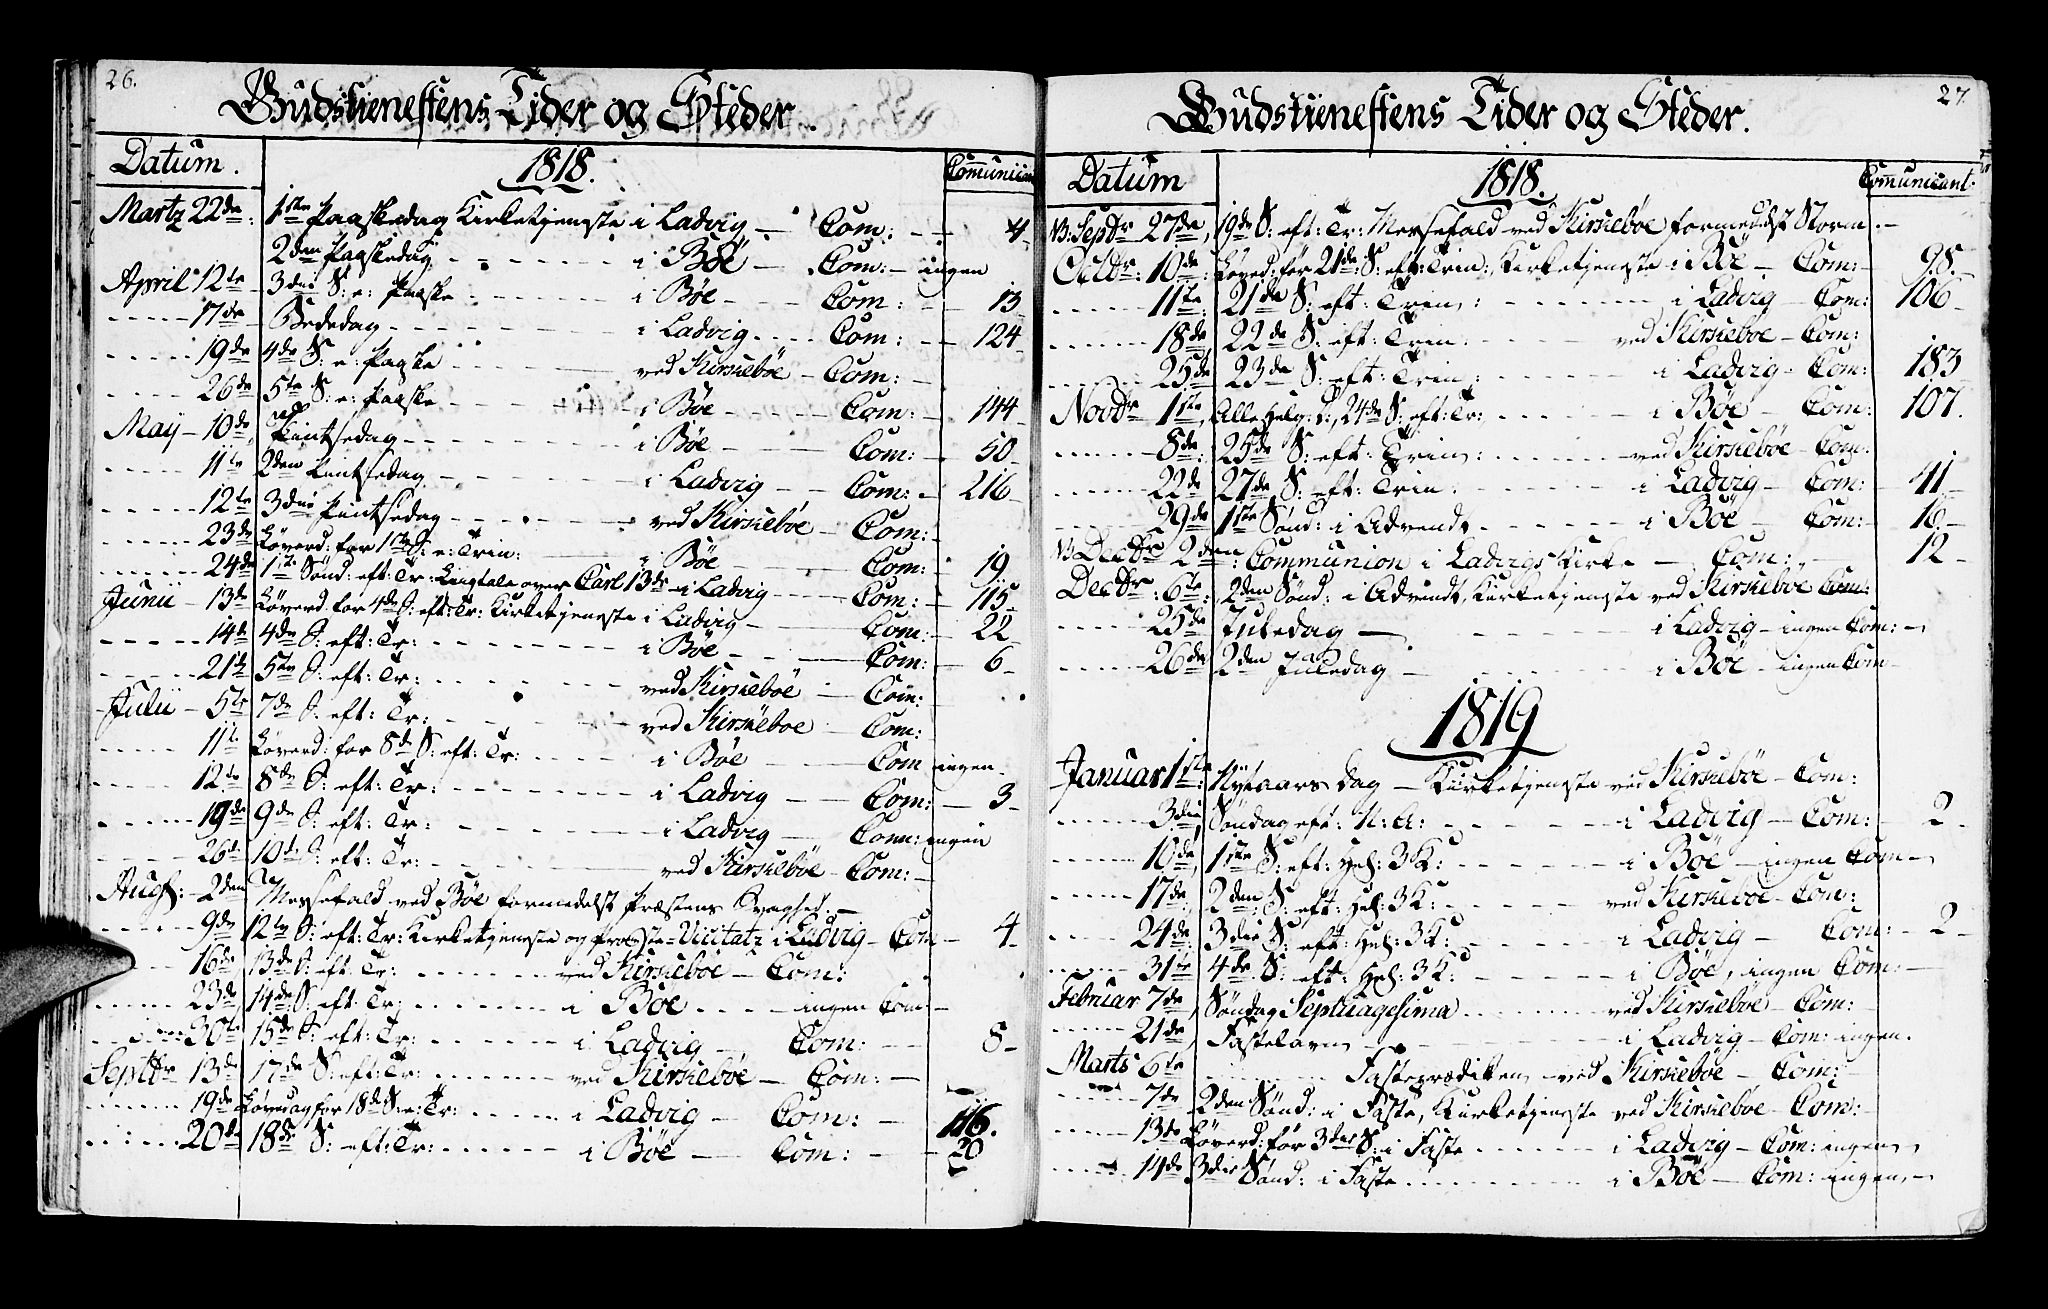 26.
Gudstienestens Tider og Steder.
Datum. 1818. Communican
Martz 22de: 1ste Paaskedag Kirketjeneste i Ladvig — Com: — 4
2den Paaskedag - - - i Böe — Com: — ingen
April 12te 3die S: e: Paaske - - - i Böe - - Com: — 13
- - - 17de Bededag - - - i Ladvig - - Com: — 124
- - - 19de 4de S: e: Paaske - - - ved Kirkeböe — Com: —
- - - 26de 5te S: e: Paaske - - - i Böe - - - Com: — 144
May — 10de Pintsedag - - - i Böe - - - Com: — 50
- - - 11te 2den Pintsedag - - - i Ladvig - - Com: — 216
- - - 12te 3die Pintsedag - - - ved Kirkeböe — Com: —
- - - 23de Löverd: for 1ste S: e: Trin: - - - i Böe — Com: — 19
- - - 24de 1ste Sönd: eft: Tr: Liigtale over Carl 13de — i Ladvig — Com: — 115
Junii — 13de Löverd: for 4de S: eft: Tr: Kirketjeneste i Ladvig — Com: — 22
- - - 14de 4de S: eft: Tr: - - - i Böe - - Com: — 6
- - - 21de 5te S: eft: Tr: - - - ved Kirkeböe — Com: —
Julii — 5te 7de S: eft: Tr: - - - ved Kirkeboe — Com:
- - - 11te Löverd: for 8de S: eft: Tr: - - - i Böe — Com ingen
- - - 12te 8de S: eft: Tr: - - - i Ladvig — Com: — 3
- - - 19de 9de S: eft: Tr: - - - i Ladvig — Com: ingen
- - - 26de 10de S: eft: Tr: - - - ved Kirkeböe — Com: —
Augst: — 2den Messefald ved Böe formedelst Præstens Svaghed. —
- - - 9de 12te S: eft: Tr: Kirketjeneste og Præste-Visitatz i Ladvig — Com — 4
- - - 16de 13de S: eft: Tr: - - - ved Kirkeböe — Com:
- - - 23de 14de S: eft: Tr: - - - i Böe - - - ingen Com —
- - - 30te 15de S: eft: Tr: - - - i Ladvig — Com: — 8
Septbr 13de 17de S: eft: Tr: - - - ved Kirkeböe — Com: —
- - - 19de Löverdag for 18de S: e: Tr: - - - i Ladvig — Com: — 116.
- - - 20de 18de S: eft: Tr: - - - i Böe — Com: — 20
27.
Gudstienestens Tider og Steder.
Datum 1818. Communicant:
NB: Septbr 27de, 19de S: eft: Tr: Messefald ved Kirkeböe formedelst Storm. —
Octbr: 10de Löverd: for 21de: S: eft: Trin:, Kirketjeneste i Böe — Com: — 98.
- - - 11te 21de S: eft: Trin: - - - i Ladvig — Com: 106
- - - 18de 22de S: eft: Trin: - - - ved Kirkeboe — Com:
- - - 25de 23de S: eft: Trin: - - - i Ladvig — Com: 183
Novbr 1ste Alle Helg: D:, 24de S: eft: Tr: - - - i Böe — Com: 107.
- - - 8de 25de S: eft: Trin: - - - ved Kirkeböe — Com:
- - - 22de 27de S: eft: Trin: - - - i Ladvig — Com: — 41
- - - 29de 1ste Sönd: i Advendt - - - i Böe — Com: — 16.
NB Decbr 2den: Communion i Ladvigs Kirke — Com: — 12
Decbr: 6te: 2den Sönd: i Advendt, Kirketjeneste ved Kirkeböe Com:
- - - 25de Juledag — - - i Ladvig — ingen Com: —
- - - 26de 2den Juledag — - - i Böe — ingen Com —
1819
Januar 1ste: Nytaars Dag — Kirketjeneste ved Kirkeböe — Com:
- - - 3die, Söndag eft: N: A: - - - i Ladvig — Com: — 2
- - - 10de, 1ste S: eft: Hel: 3K: - - - i Böe — ingen Com —
- - - 17de 2den: S: eft: Hel: 3K: - - - ved Kirkeböe — Com:
- - - 24de 3die S: eft: Hel: 3K: - - - i Ladvig — Com: — 2
- - - 31te 4de S: eft: Hel: 3K: - - - i Böe, ingen Com: —
Februar 7de, Söndag Septuagesima - - - ved Kirkeböe — Com: —
- - - 21de Fastelavn — - - - i Ladvig — Com: ingen.
Marts 6te - - - Fasteprædiken ved Kirkeböe — Com:
- - - 7de 2den Sönd: i Faste, Kirketjeneste ved Kirkeböe — Com: —
- - - 13de Löverd: for 3die S: i Faste - - - i Ladvig — Com: ingen
- - - 14de 3die Sönd: i Faste - - - i Böe — Com: ingen, —